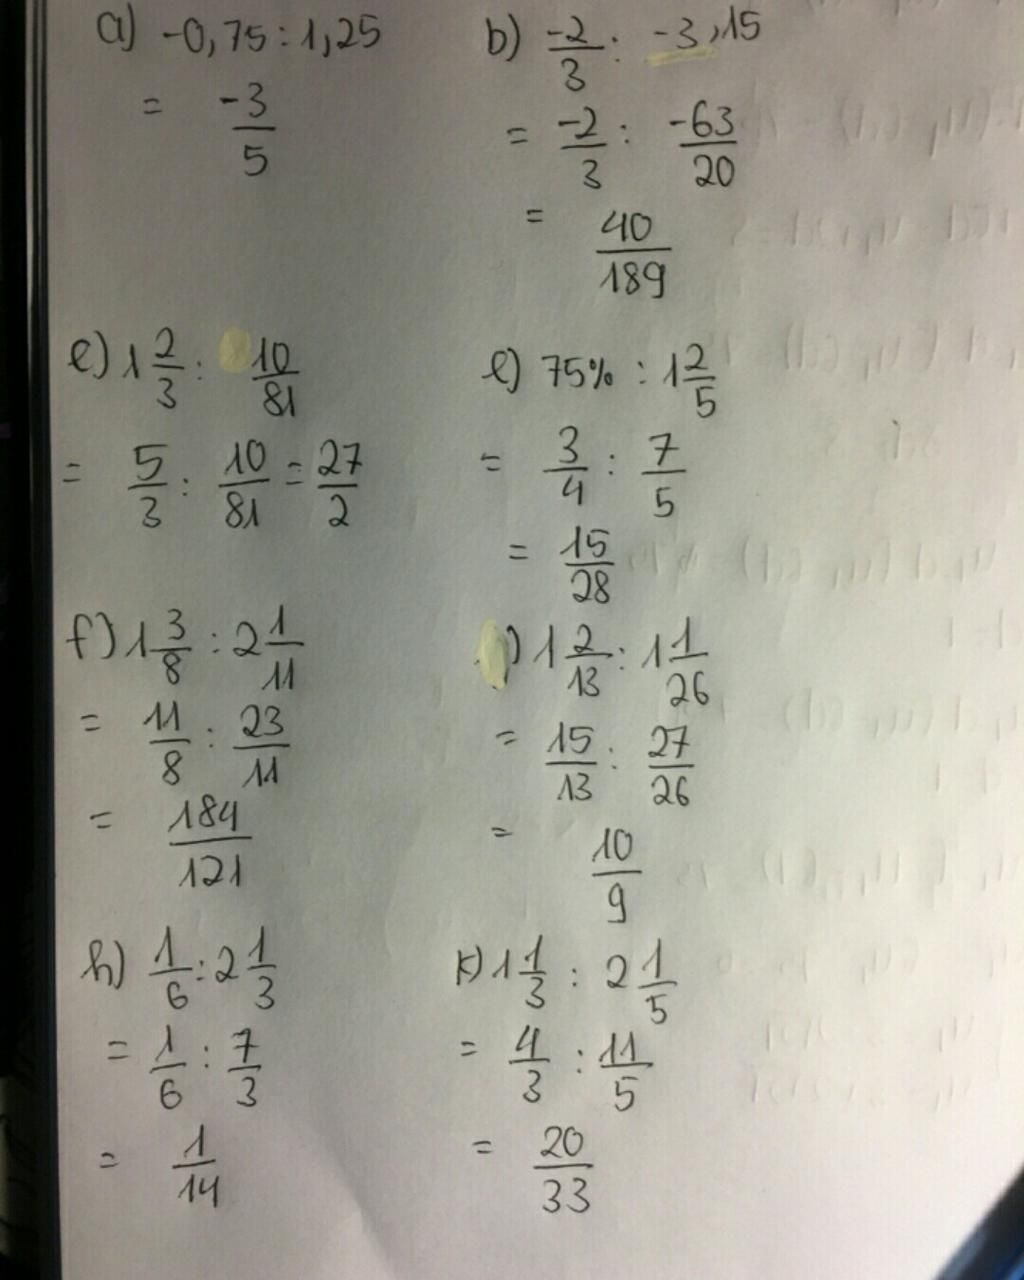 a) -0,75 : 1,25
= -3/5
b) -2/3 : -3,15
= -2/3 : -63/20
= 40/189
e) 1 2/3 : 10/81
= 5/3 : 10/81 = 27/2
l) 75% : 1 2/5
= 3/4 : 7/5
= 15/28
f) 1 3/8 : 2 1/11
= 11/8 : 23/11
= 184/121
) 1 2/13 : 1 1/26
= 15/13 : 27/26
= 10/9
h) 1/6 : 2 1/3
= 1/6 : 7/3
= 1/14
k) 1 1/3 : 2 1/5
= 4/3 : 11/5
= 20/33